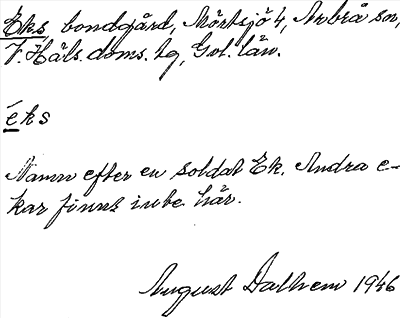 Eks bondgård, Mörtsjö 4, Arbrå sn,
V. Häls. doms. tg, Gvl. län.
éks
Namn efter en soldat Ek. Andra e-
kar finns inte här.
August Dalhem 1946